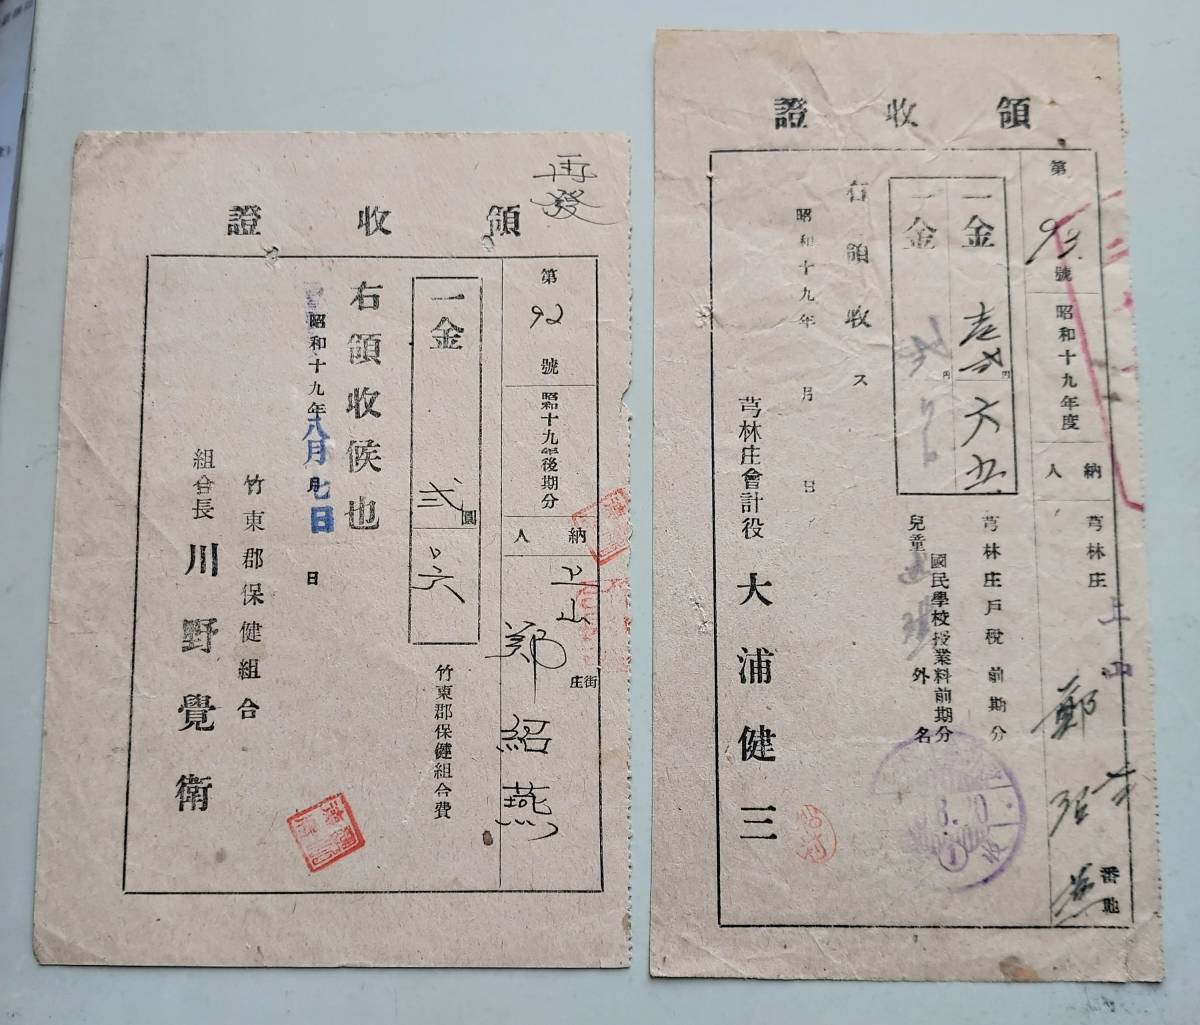 再發
領收證
第92號
昭和十九年後期分
納人
上山
街庄
鄭紹燕
一金
弍圓
六
竹東郡保健組合費
右領收候也
昭和十九年八月七日
月
日
竹東郡保健組合
組合長 川野覺衛
領收證
第93號
昭和十九年度
納人
芎林庄上山
鄭
番地
一金
円
六五
芎林庄戶稅前期分
一金
円
國民學校授業料前期分
兒童
外
名
右領收ス
昭和十九年 月 日
芎林庄會計役 大浦健三